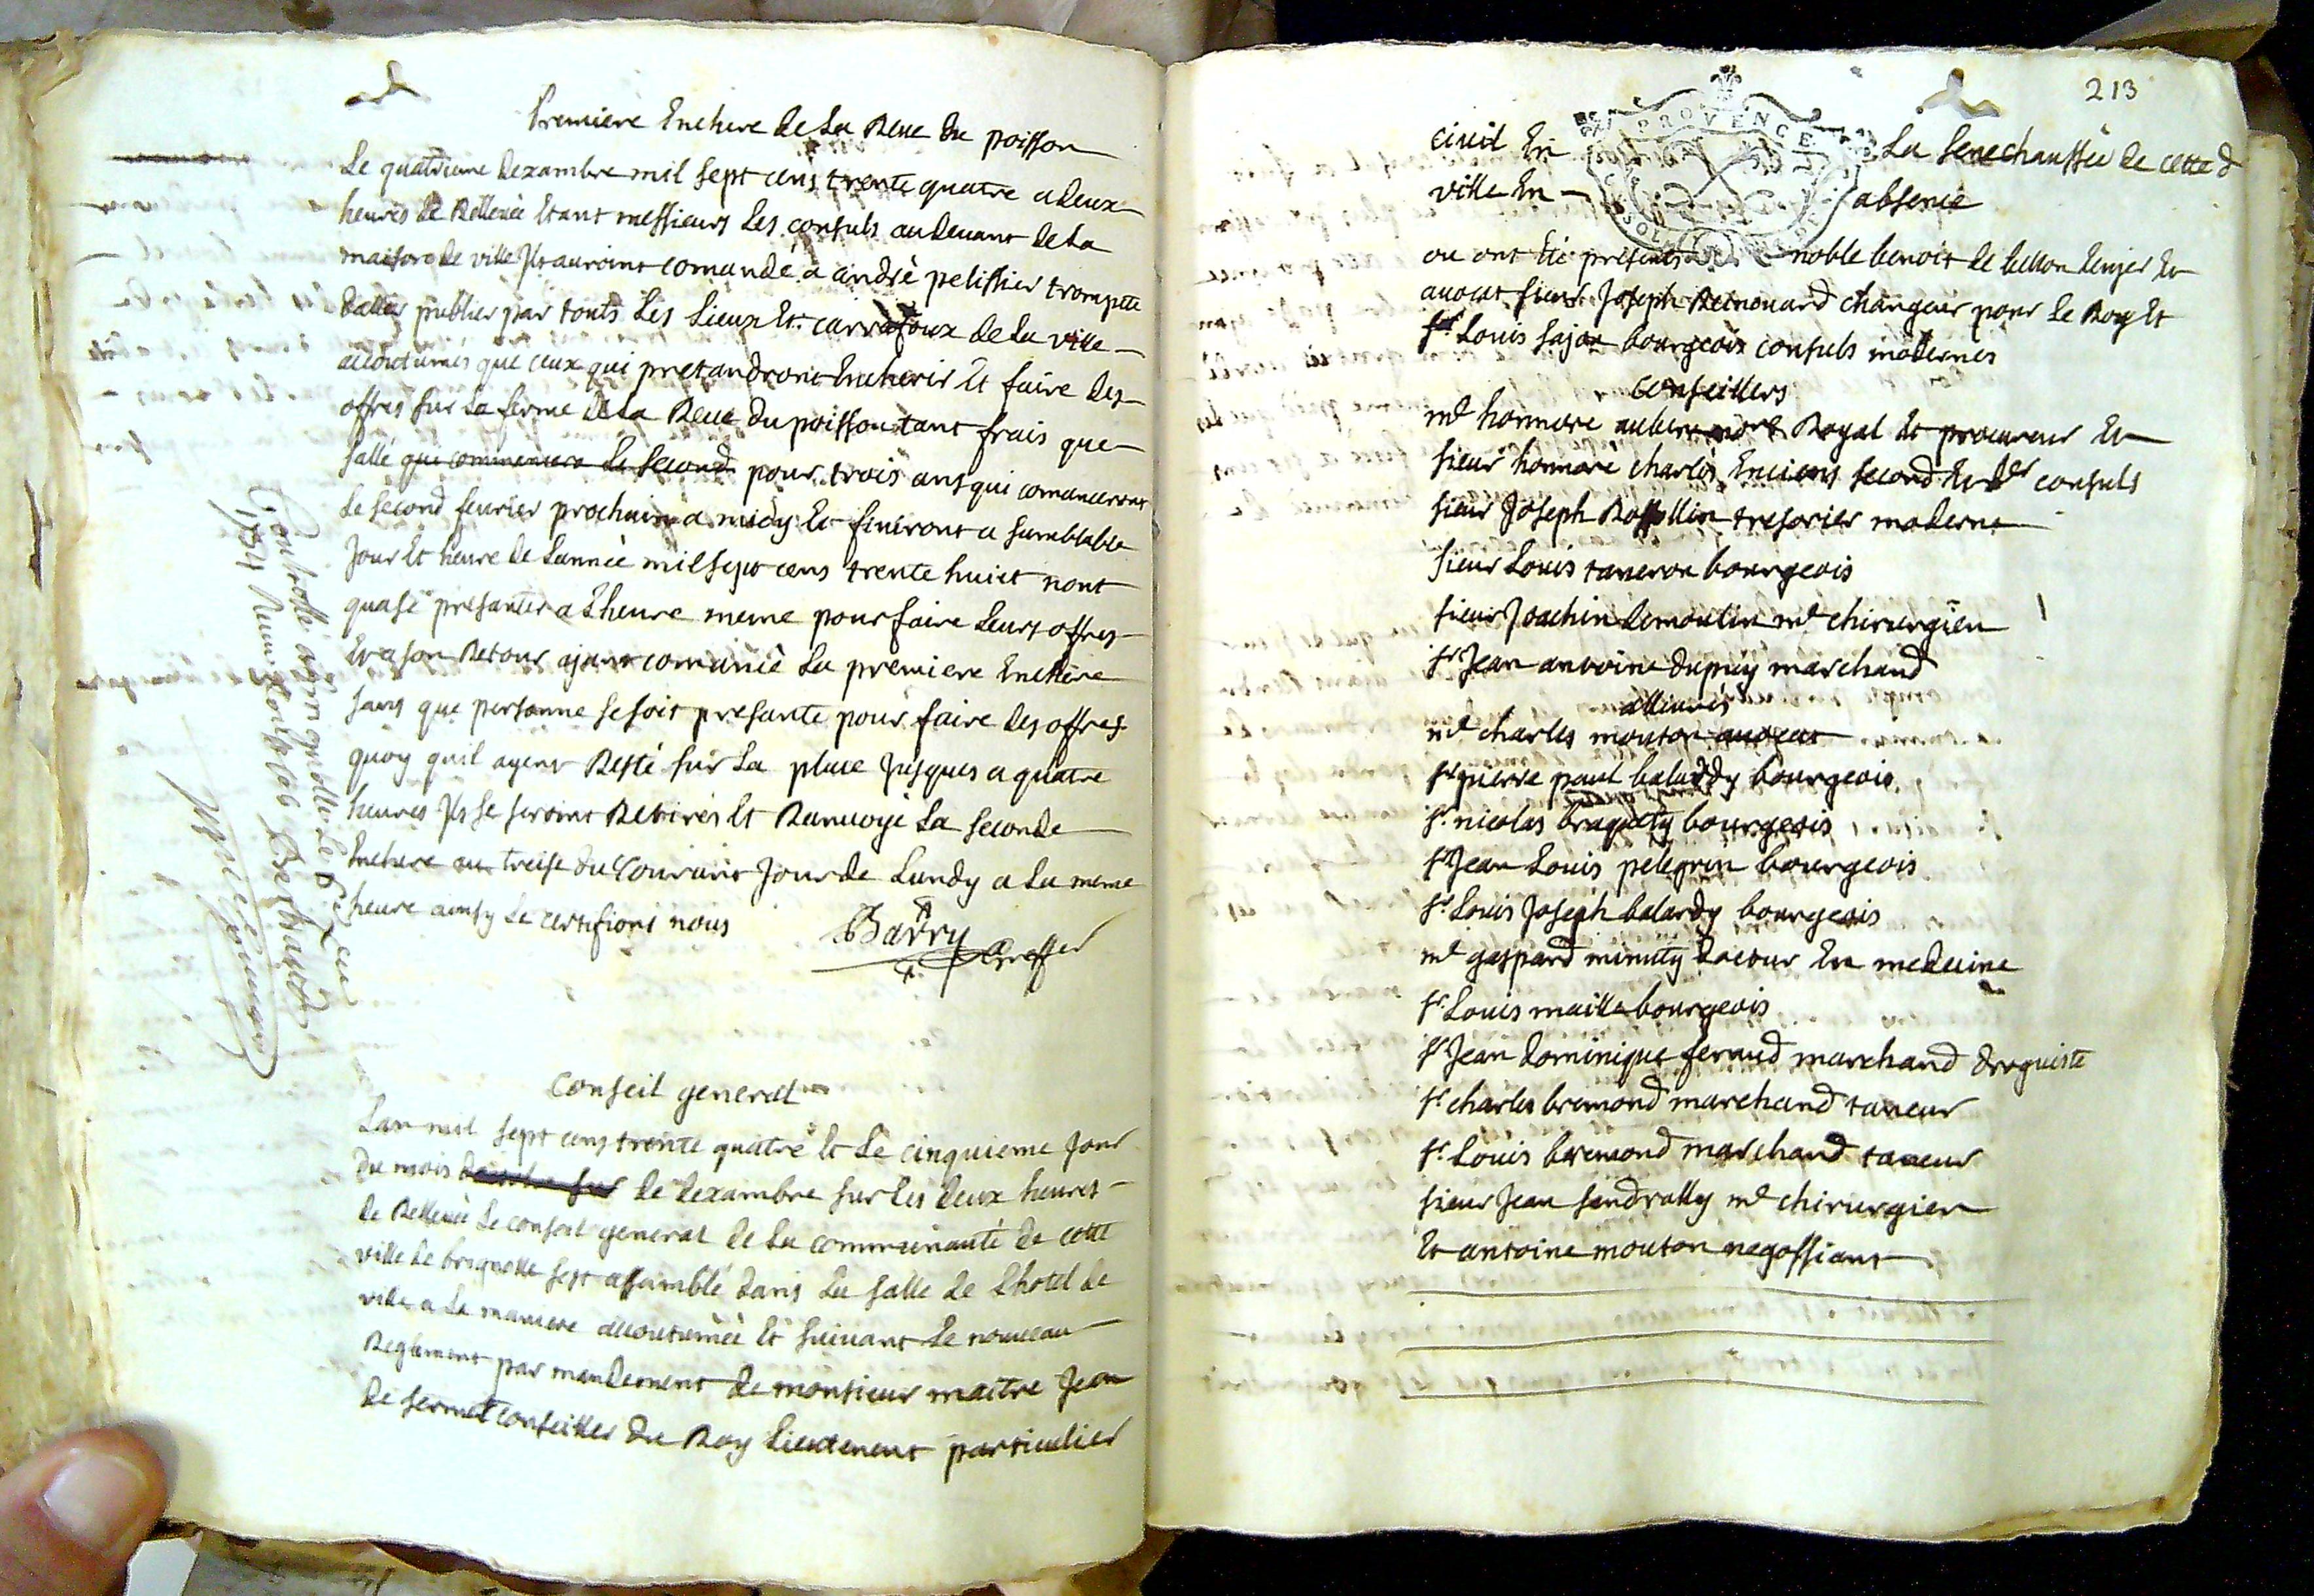 Premiere Enchere de La Reve du poisson
Le quatrieme dexambre mil sept cens trente quatre a deux
heures de Rellevée Etant messieurs Les consuls au devant de La
maison de ville Ils auroint comandé a andré pelissier trompete
daller publier par touts Les Lieux Et carrafoux de La ville
accoutumés que ceux qui pretandront Encherir Et faire des
offres sur La ferme de La Reve du poisson tant frais que
sallé qui commencera Le second pour trois ans qui comanceront
Le second fevrier prochain a midy Et finiront a samblable
Jour Et heure de Lannée mil sept cens trente huict nont
qua se presanter a Lheure meme pour faire Leurs offres
Et a son Retour ajant comancé La premiere Enchere
sans que personne se soit presanté pour faire des offres
quoy quil ayent Resté sur La place Jusques a quatre
heures Ils se seroint Retirés Et Ranvoyé La seconde
Enchere au treise du Courant Jour de Lundy a La meme
heure ainsy Le certifions nous
Barry
Greffier
Controllé a brignolle Le 6 Xbre
1734 Receu
Bertrand
Conseil general
Lan mil sept cens trente quatre Et Le cinquieme Jour
du mois de dexambre sur Les deux heures
de Rellevée Le conseil general de La communauté de cette
ville de brignolle sest assamblé dans La salle de Lhotel de
ville a La maniere accoutumée Et suivant Le nouveau
Reglement par mandement de monsieur maitre Jean
de fermet conseiller du Roy Lieutenent particulier
213
PROVENCE
civil En La Senechaussée de cette d
ville En absence
ou ont été presents noble benoit de bellon Et
avocat sieur Joseph Reinouard changeur pour Le Roy Et
sr Louis sajou bourgeois consuls modernes
Conseillers
me honnore Royal Et procureur Et
sieur honnoré charles Enciens second Et der consuls
sieur Joseph Rossollin tresorier moderne
sieur Louis taneron bourgeois
sieur Joachin demoulin me chirurgien
sr Jean antoine dupuy marchand
allivrés
me charles mouton avocat
sr pierre paul balardy bourgeois
sr nicolas braquety bourgeois
sr Jean Louis pelegrin bourgeois
sr Louis Joseph balardy bourgeois
me gaspard minuty doctour En medecine
sr Louis maille bourgeois
sr Jean dominique feraud marchand droguiste
sr charles bremond marchand taneur
sr Louis bremond marchand taneur
sieur Jean sendrally me chirurgien
Et antoine mouton negossiant